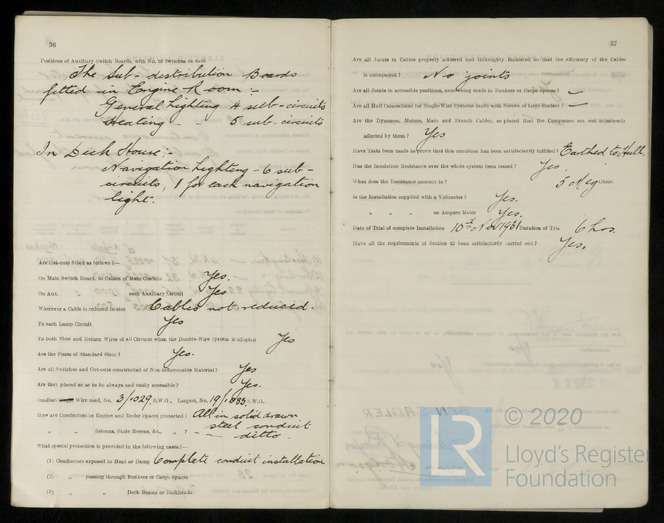 56
Positions of Auxiliary Switch Boards, with No. of Switches on each
The Sub-distribution Boards
fitted in Engine Room :-
General Lighting 4 sub-circuits
Heating - 5 sub-circuits
In Deck House :-
Navigation Lighting - 6 sub-
circuits, 1 for each navigation
light.
Are Cut-outs fitted as follows ?—
On Main Switch Board, to Cables of Main Circuits Yes.
On Aux. " each Auxiliary Circuit Yes
Wherever a Cable is reduced in size Cables not reduced.
To each Lamp Circuit Yes
To both Flow and Return Wires of all Circuits when the Double-Wire System is adopted Yes
Are the Fuses of Standard Sizes? Yes.
Are all Switches and Cut-outs constructed of Non-inflammable Material? Yes
Are they placed so as to be always and easily accessible? Yes.
Smallest Wire used, No. 3/.029 S.W.G., Largest, No. 19/.083 S.W.G.
How are Conductors in Engine and Boiler Spaces protected? All in solid drawn
steel conduit
" " Saloons, State Rooms, &c., " ? - ditto -
What special protection is provided in the following cases?—
(1) Conductors exposed to Heat or Damp Complete conduit installation
(2) " passing through Bunkers or Cargo Spaces
(3) " " Deck Beams or Bulkheads
37
Are all Joints in Cables properly soldered and thoroughly insulated so that the efficiency of the Cables
is unimpaired? No joints
Are all Joints in accessible positions, none being made in Bunkers or Cargo Spaces? —
Are all Hull Connections for Single-Wire Systems made with Screws of Large Surface? —
Are the Dynamos, Motors, Main and Branch Cables, so placed that the Compasses are not injuriously
affected by them? Yes
Have Tests been made to prove that this condition has been satisfactorily fulfilled? Earthed to Hull.
Has the Insulation Resistance over the whole system been tested? Yes.
What does the Resistance amount to? 5 Meg Ohms.
Is the Installation supplied with a Voltmeter? Yes.
" " " an Ampere Meter Yes.
Date of Trial of complete Installation 10th Nov 1931 Duration of Trial 6 hrs.
Have all the requirements of Section 42 been satisfactorily carried out? Yes.
LR
© 2020
Lloyd's Register
Foundation